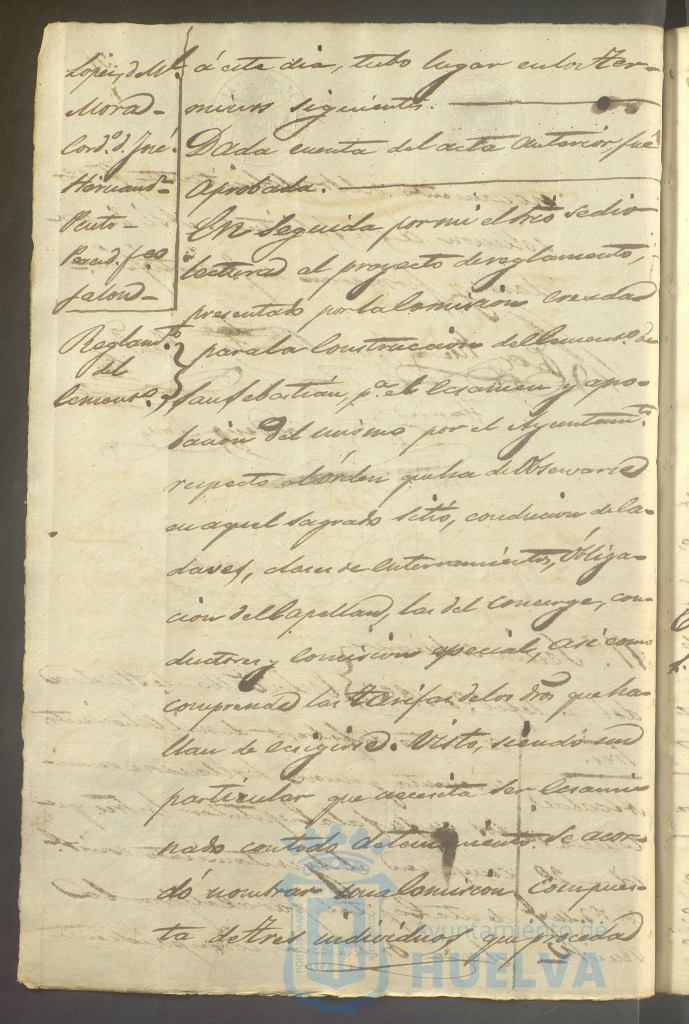 Lopez, d. Ml.
Mora
Cord.o d. José
Hernand.
Pinto
Fco
Jalon
Reglam.to
del
Cement.o
á este dia, tubo lugar en los ter-
minos siguientes.
Dada cuenta del acta anterior fué
aprobada.
En seguida, por mi el Srio se dio
lectura al proyecto de reglamento,
presentado por la Comision creada
para la Construccion del Cement.o de
San Sebastián, p.a el ecsamen y apro-
bacion del mismo por el Ayuntam.to
respecto al órden que ha de observarse
en aquel sagrado sitio, conduccion de ca-
daveres, clases de enterramientos, óbliga-
cion del Capellan, las del concerge, con-
ductores y Comision especial, así como
comprende las tarifas de los dros que ha-
llan de ecsigirse. Visto, siendo un
particular que necesita ser ecsami
nado con todo detenimiento se acor-
dó nombrar una Comision compues-
ta de tres individuos que proceda
Ayuntamiento de
HUELVA